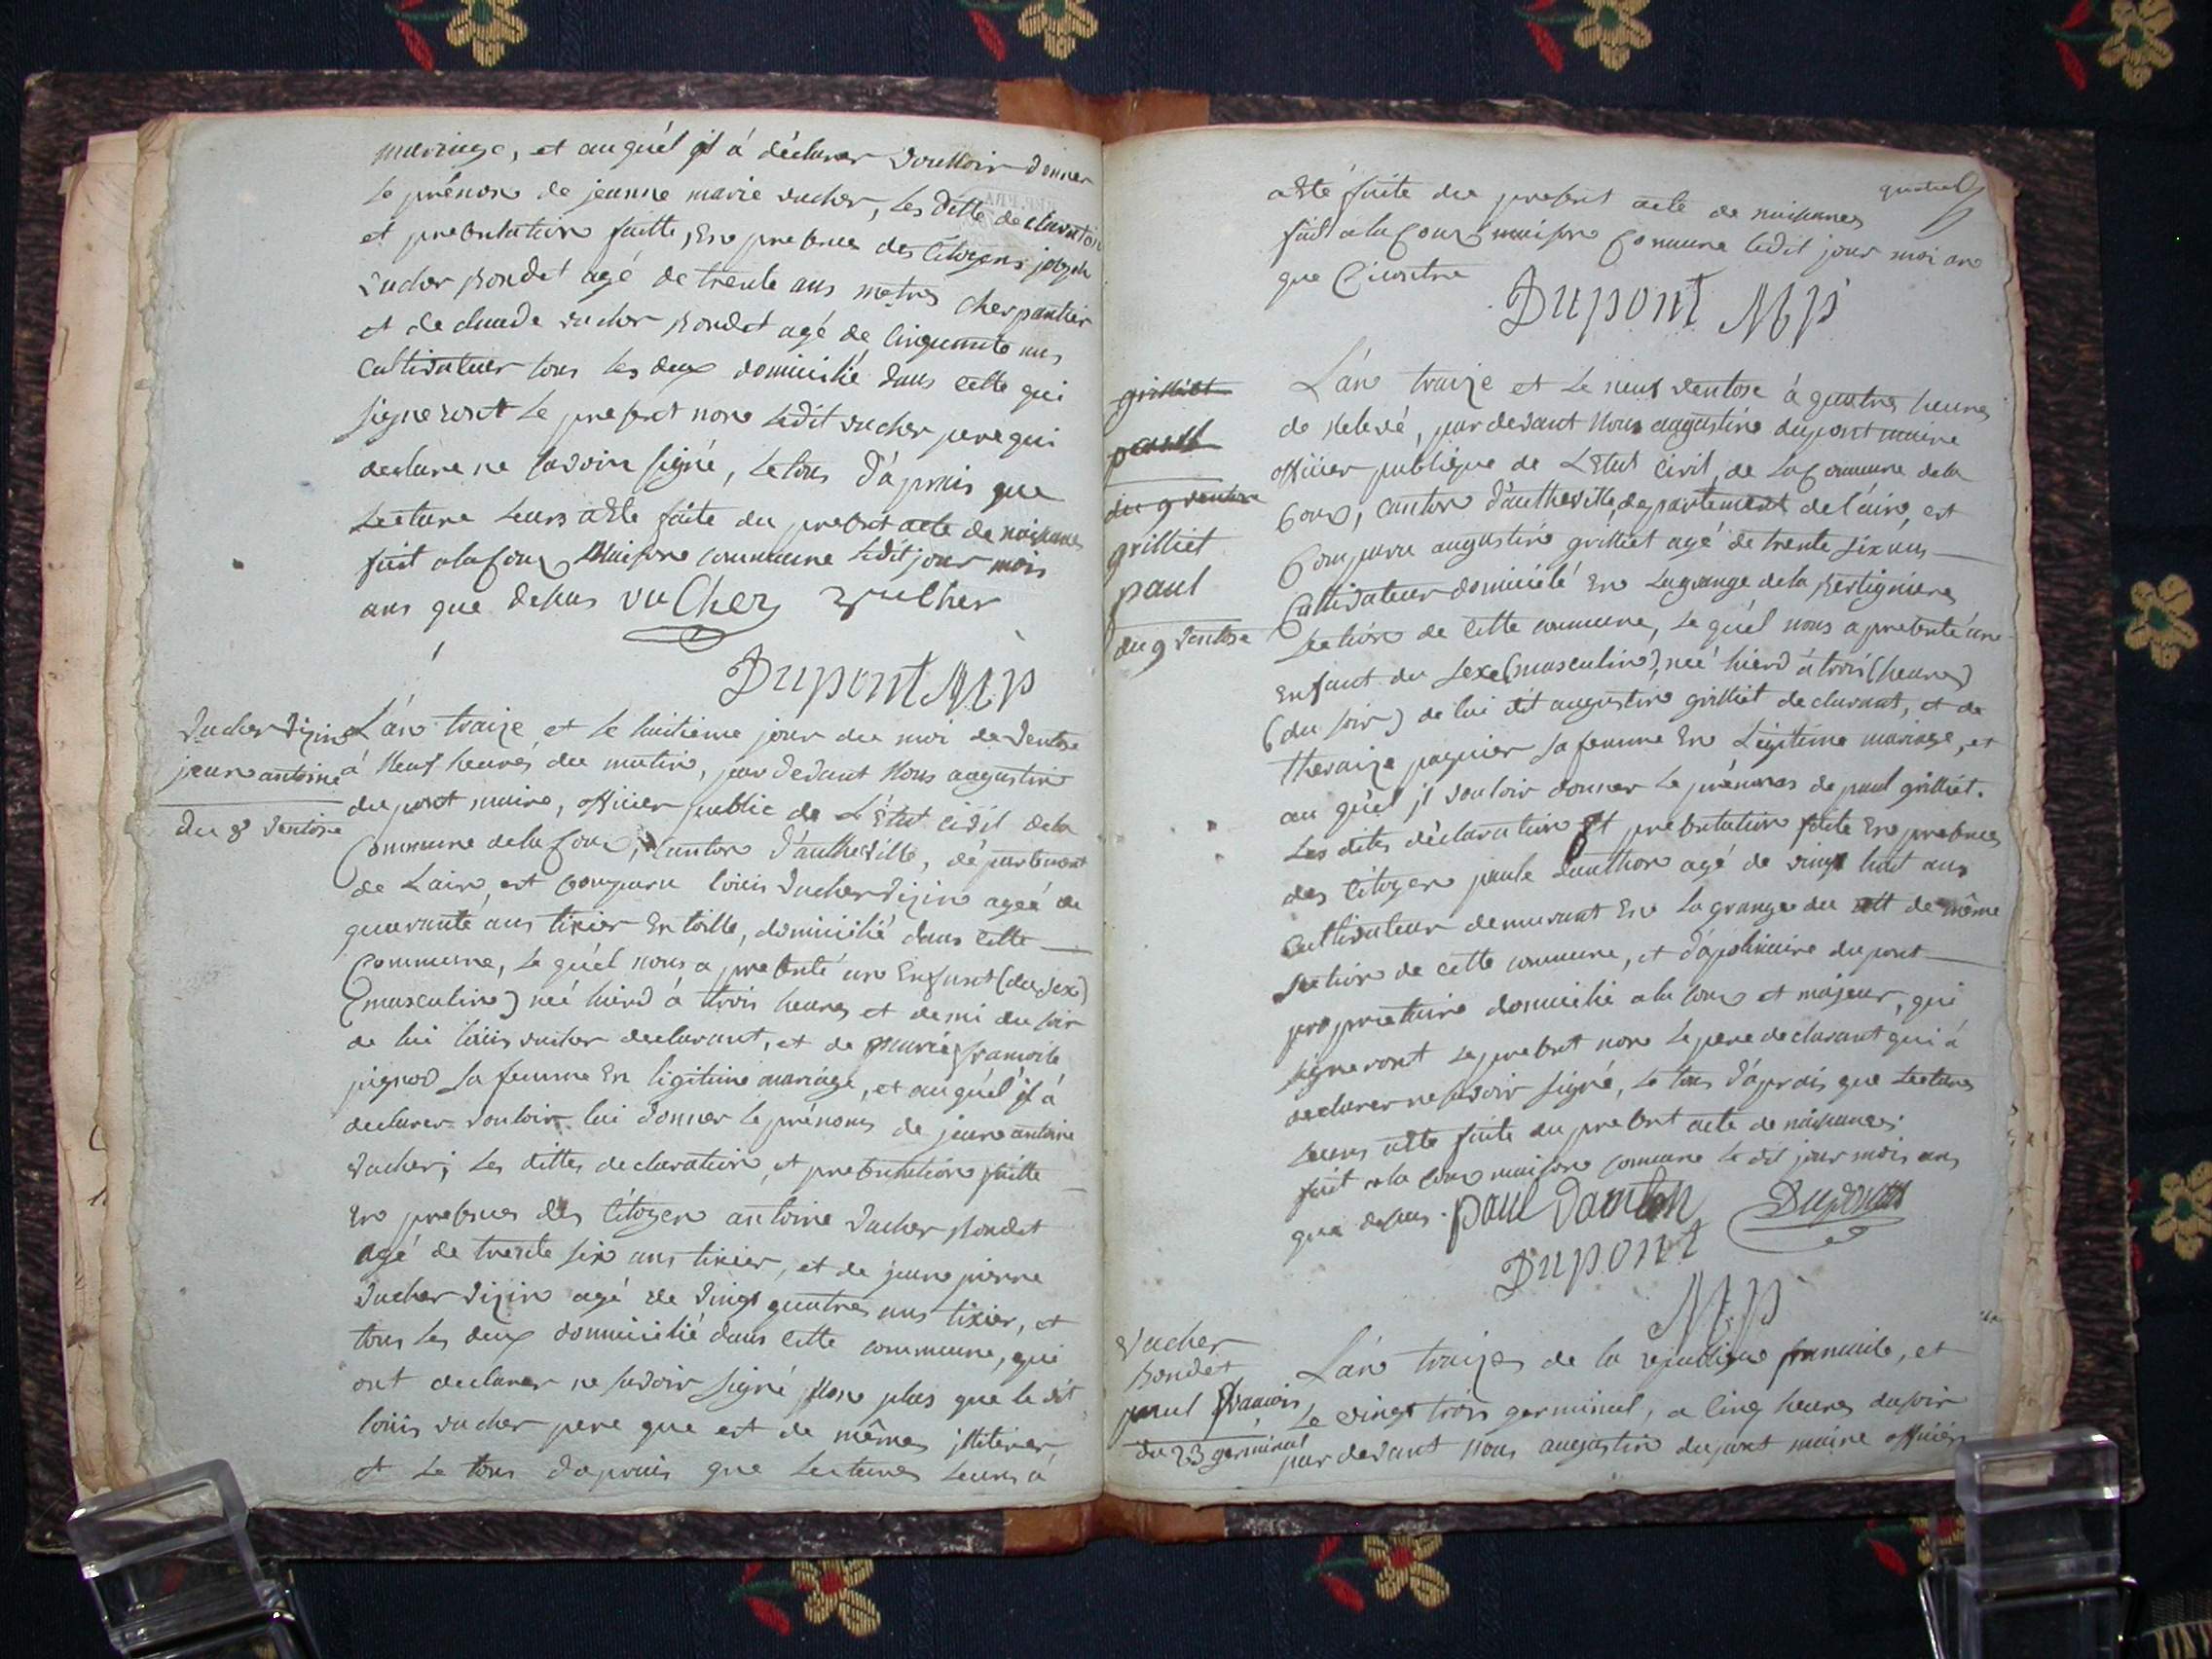 mariage, et auquél il á déclarer vouttoir donner
le prénon de jeanne marie vucher, les ditte declaration
et presentation faitte, En presence des Citoyens joseph
vucher Rondet agé de trente ans metres cherpantier
et de claude vucher Rondet agé de cinquante ans
Cultivateur tous les deux domicilié dans cette qui
signeront le present non ledit vucher pere qui
declare ne savoir signé, le tous d'aprais que
lecture leurs a été faite du present acte de naissances
fait a la Coux Maison commune ledit jour mois
ans que dessus vuCher vulher
Dupont M,p
vucher vizin
jean antoine
du 8 ventose
L'án traize et le huitieme jour du moi de ventose
á Neuf heures du matin, par devant Nous augustin
dupont maire, officier public de L'État civil dela
Commune dela Coux, Canton d'autheville, département
de Lain, est comparu loüis vucher vizin ageé de
quarante ans tixier En toille, domicilié dans cette
Commune, le quél nous a presenté un Enfant (du sex)
(masculin) né hierd á trois heures et demi du soir
de lui loüis vucher declarant, et de marie françoise
pignod sa femme En ligitime mariage, et auquél il á
declarer vouloir lui donner le prénoms de jean antoine
vucher; les dittes declaration, et presentation faitte
En presence des Citoyen antoine vucher Rondet
agé de trente six ans tixier, et de jean pierre
vucher vizin agé de vingt quatres ans tixier, et
tous les deux domicilié dans cette commune, qui
ont declarer ne savoir signé Non plus que le dit
loüis vucher pere que est de mêmes illiterer
et le tous daprais que lectures leurs á
a Eté faite du present acte de naissances
fait a la Coux maison Comune ledit jour moi an
que Cicontre
Dupont M,p
grilliet
paul
du 9 ventose
grilliet
paul
du 9 ventose
L'án traize et le neuf ventose á quatres heures
de Relevé, par devant Nous augustin dupont maire
officier publique de L'Etat civil, de la Commune dela
Coux, canton d'autheville, departement de l'ain, est
Comparu augustin grilliet agé de trente six ans
Cultivateur domicilé En Lagrange dela
section de cette commune, le quél nous a presenté un
enfant du sexe (masculin), né hierd á trois (heures)
(du soir) de lui dit augustin grilliet declarant, et de
theraize paquier sa femme En Légitime mariage, et
au quél jl vouloir donner le prénoms de paul grilliet.
Les dites déclaration et presentation faite En presences
des Citoyen paule agé de vingt huit ans
Cultivateur demeurant En La grange du dit de même
section de cette commune, et d'apolinaire dupont
proprietaire domicilié a la Coux et majeur, qui
signeront le present non le pere declarant qui á
declarer ne savoir signé, le tous d'aprais que lectures
leurs été faite du present acte de naissances
fait a la Coux maison comune le dit jour mois ans
que dessus. paul Dupont
Dupont
M,p
vucher
Rondet
paul françois
du 23 germinal
L'án traizes de la republique francaise, et
Le vingt trois germinal, a cinq heures du soir
par devant nous augustin dupont maire officier